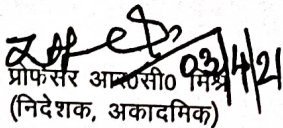 03/4/21
प्रोफेसर आर०सी० मिश्र
(निदेशक, अकादमिक)